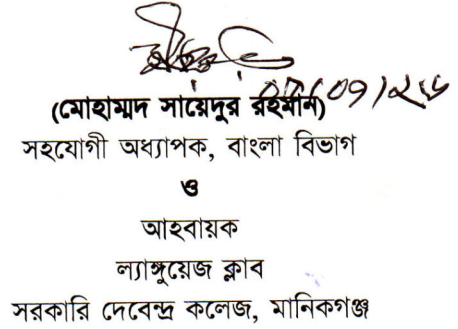 (মোহাম্মদ সায়েদুর রহমান)
সহযোগী অধ্যাপক, বাংলা বিভাগ
ও
আহবায়ক
ল্যাঙ্গুয়েজ ক্লাব
সরকারি দেবেন্দ্র কলেজ, মানিকগঞ্জ